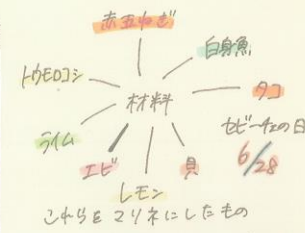 赤玉ねぎ
白身魚
トウモロコシ
タコ
材料
セビーチェの日
6/28
ライム
エビ
貝
レモン
これらをマリネにしたもの